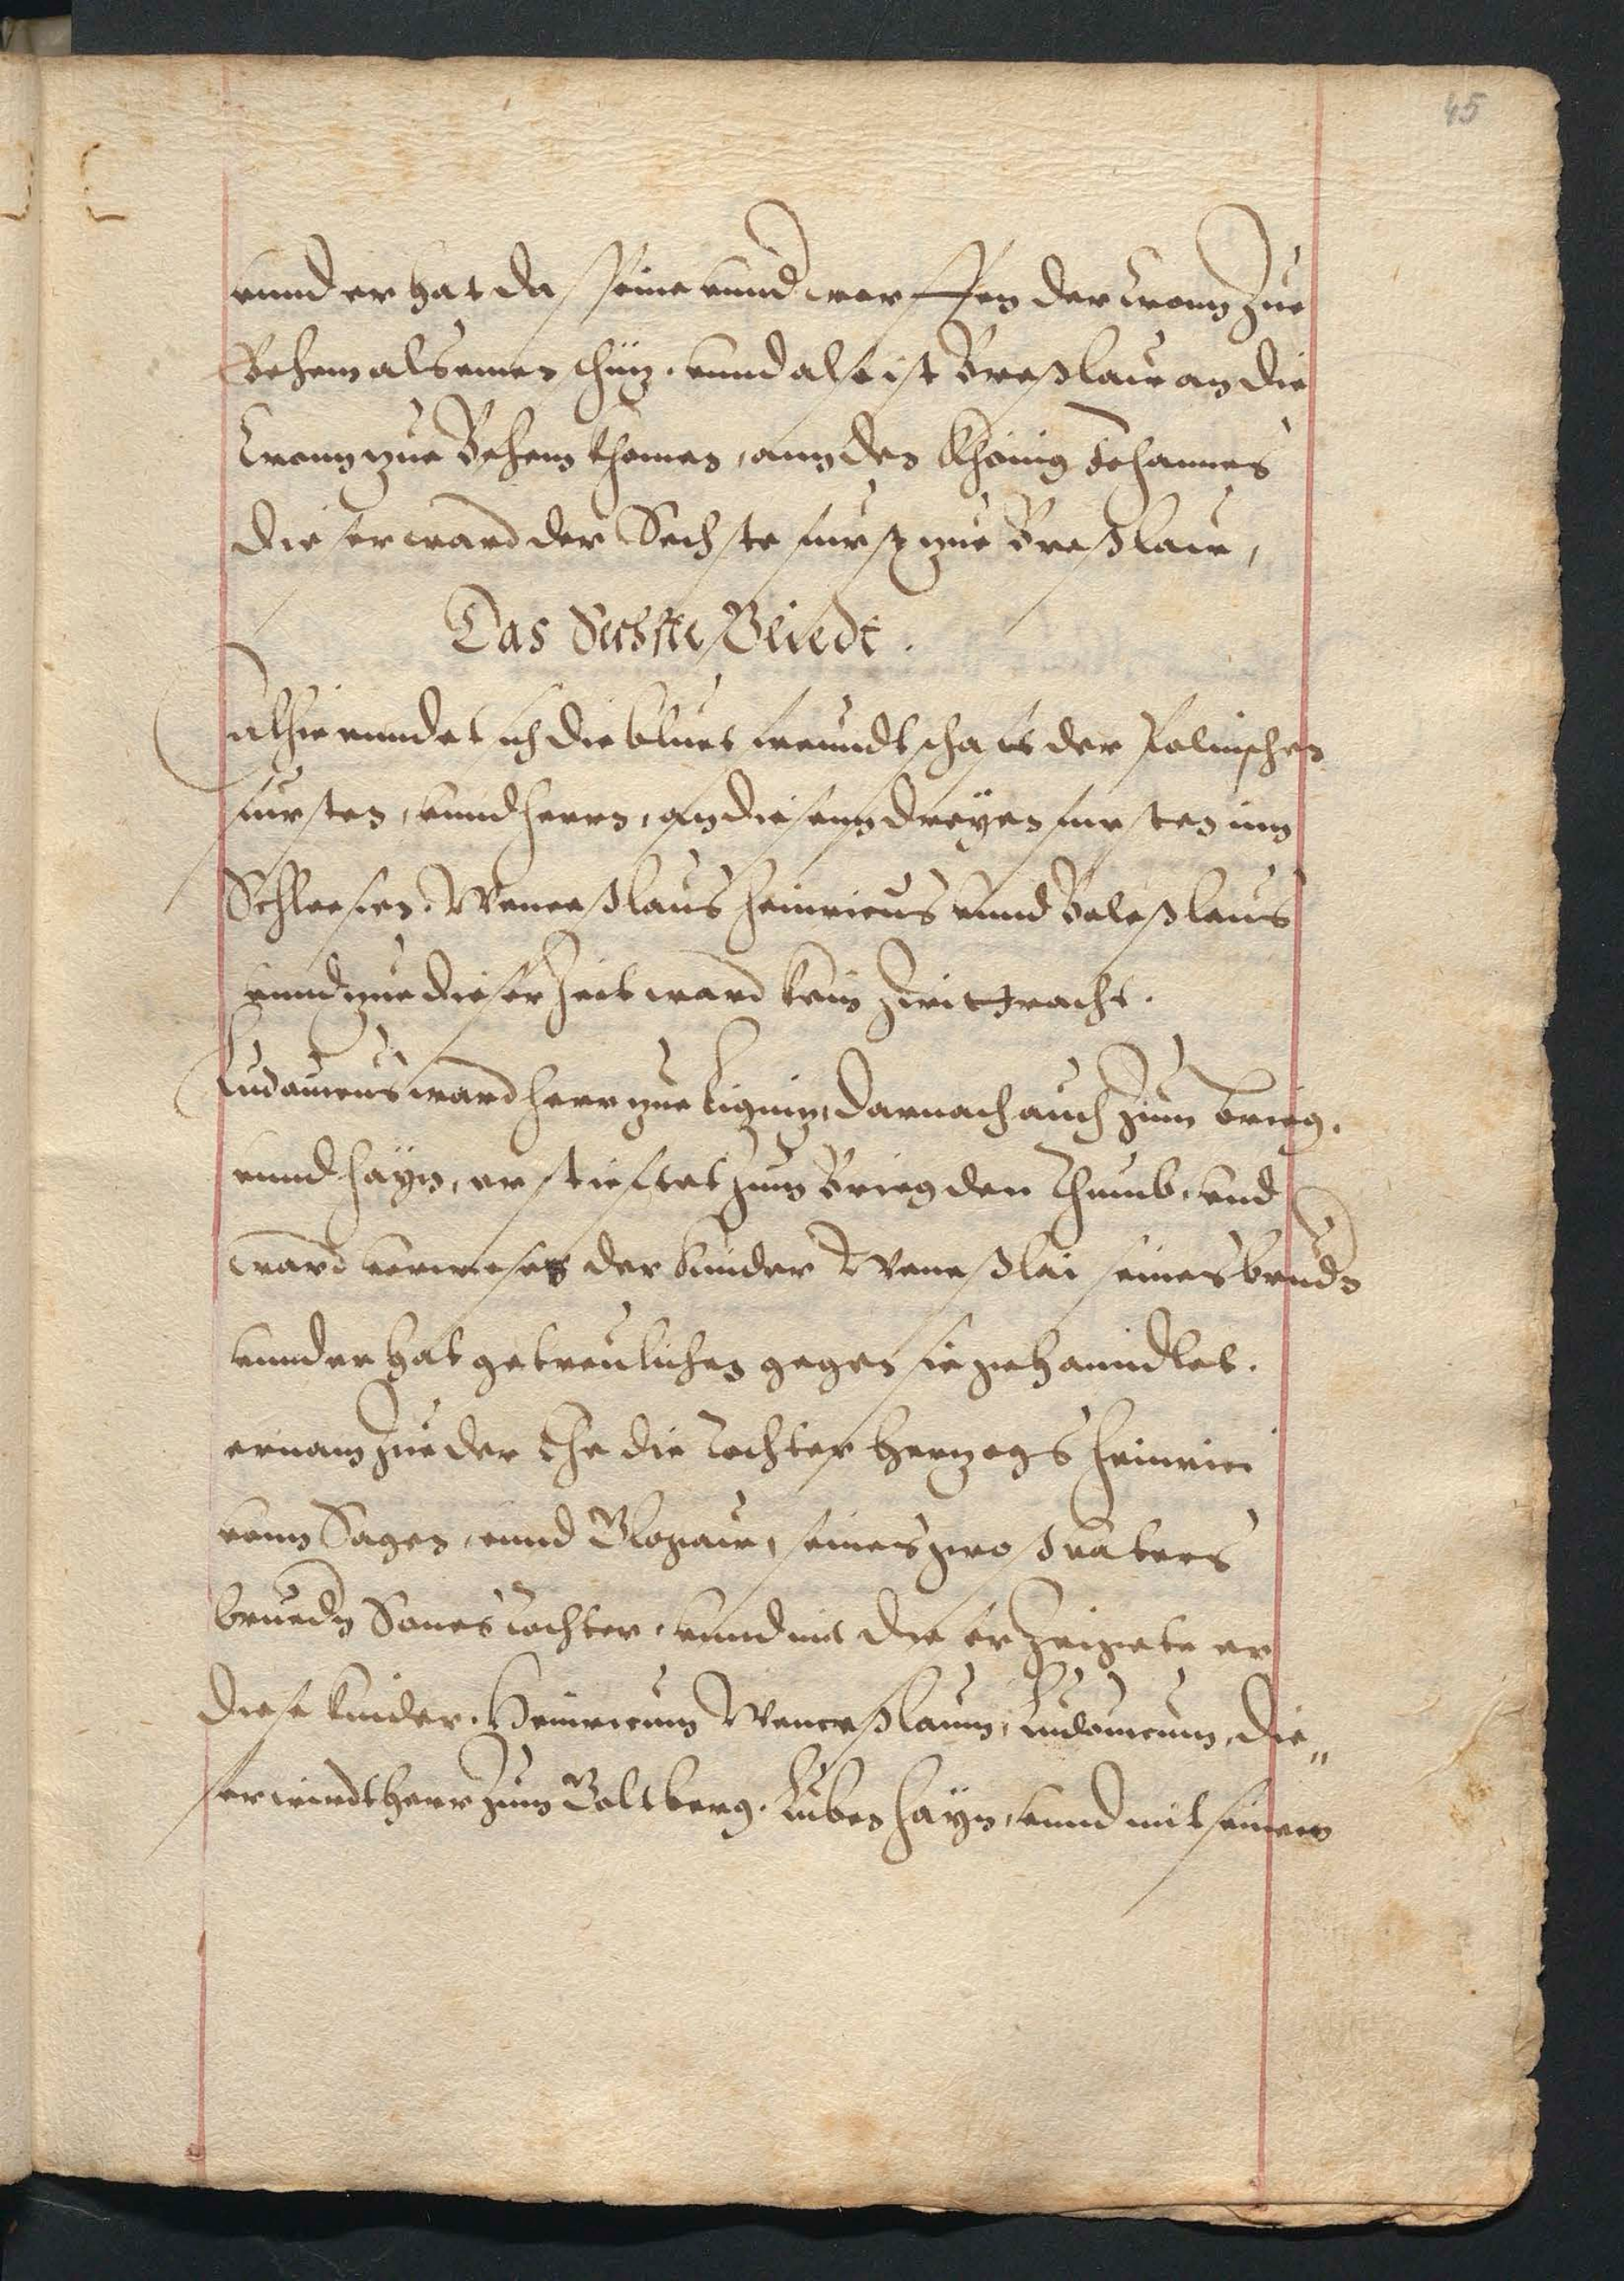 45
vnnd er hat da seine vnnd worffen der Cronn Zue
Behem als einen schuz. vnnd also ist Breßlaw an die
Cronn zue Behem khomen, ann den Khönig Johannes
dieser ward der Sechste furst zue Breßlaw,
Das Sechste Gliedt.
alhie enndet sich die bluet freundtschafft der Polnischen
fursten, vnnd herrn, an diesenn dreyen fursten inn
Schlesien. Wenceßlaus Heinricus vnnd Boleßlaus
vnnd zue dieser Zeit ward kein Zwittracht.
Ludouicus ward herr zue Lignitz, darnach auch Zum Brieg.
vnnd Hayn, er stiftet Zum Brieg den Thumb, vnd
ward verweser der kinder Wenceßlai seines brudern
vnnd er hat getreulichen gegen sie gehanndlet.
er nam Zue der Ehe die Tochter Herzogs Heinrici
vonn Sagen, vnnd Glogaw, seines groß vatters
bruedern Sones Tochter, vnnd mit die er Zeigete er
diese kinder. Heinricum Wenceßlaum, Ludouicum, die„
ser wirdt Herr Zum Goltberg. Luben Hayn, vnnd mit seinem